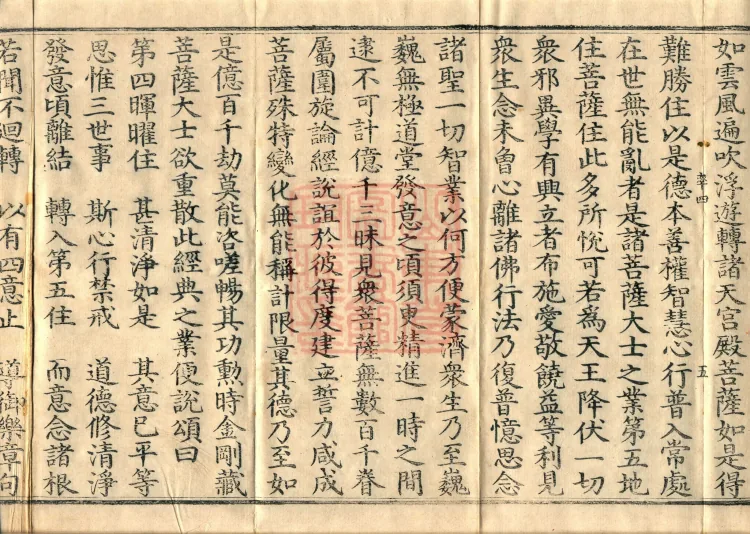 如雲風遍吹浮遊轉諸天宮殿菩薩如是得
率四 五
難勝住以是德本善權智慧心行普入常處
在世無能亂者是諸菩薩大士之業第五地
住菩薩住此多所悅可若為天王降伏一切
衆邪異學有興立者布施愛敬饒益等利見
衆生念未曾心離諸佛行法乃復普憶思念
諸聖一切智業以何方便蒙濟衆生乃至巍
巍無極道堂發意之頃須臾精進一時之間
逮不可計億千三昧見衆菩薩無數百千眷
屬圍旋論經說誼於彼得度建立誓力咸成
菩薩殊特變化無能稱計限量其德乃至如
是億百千劫莫能咨嗟暢其功勲時金剛藏
菩薩大士欲重散此經典之業便說頌曰
第四暉曜住 甚清淨如是 其意已平等
思惟三世事 斯心行禁戒 道德修清淨
發意頃離結 轉入第五住 而意念諸根
若聞不迴轉 以有四意止 導御樂章句